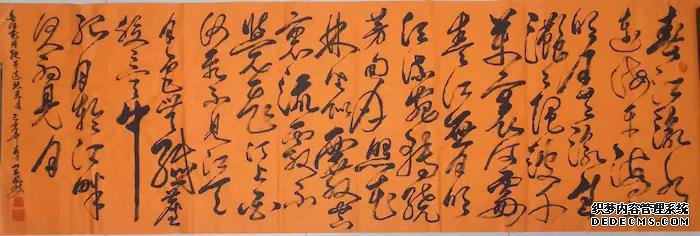 春江潮水
連海平海上
明月共潮生
灩灩隨波千
萬里何處
春江無月明
江流宛轉繞
芳甸月照花
林皆似霰空
裏流霜不
覺飛汀上白
沙看不見江天
一色無纖塵
皎皎空中
孤月輪江畔
何人初見月
织梦内容管理系统
DEDECMS.COM